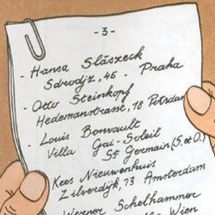 - 3 -
- Hansa Slászeck
Sdrodjz. 45 - Praha
- Otto Steinkopf
Hedemanstrasse, 18 Potsdam
- Louis Bonvault
Villa Gai-Soleil
St Germain (S. et O.)
- Kees Nieuwenhuis
Zilverdijk, 73 Amsterdam
- Werner Schelhammer
Wien